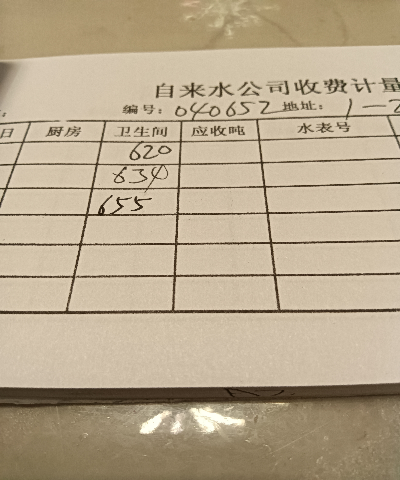 自来水公司收费计量
编号：040652 地址：1-2
日 厨房 卫生间 应收吨 水表号
620
634
655